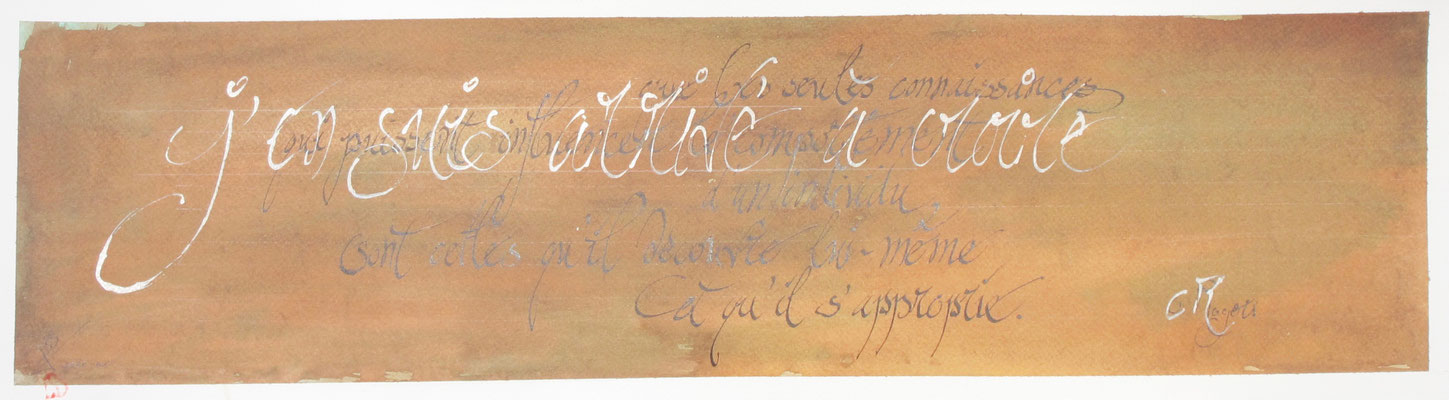 j'en suis arrivé à croire
que les seules connaissances
qui puissent influencer le comportement
d'un individu,
sont celles qu'il découvre lui-même
et qu'il s'approprie.
C Rogers